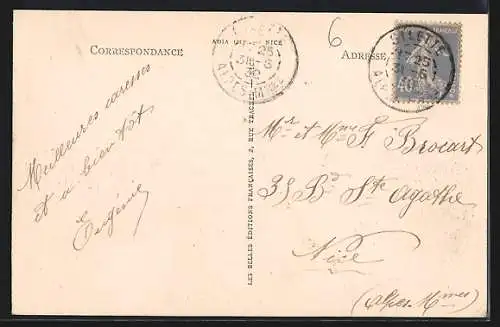 CORRESPONDANCE
NICE
ADRESSE
ALPES
40
Meilleures caresses
et à bientôt
Eugénie
LES BELLES EDITIONS FRANÇAISES, 2, RUE
Mr et Mme F. Brocart
35 Bd Ste Agathe
Nice
(Alpes-Mmes)
6